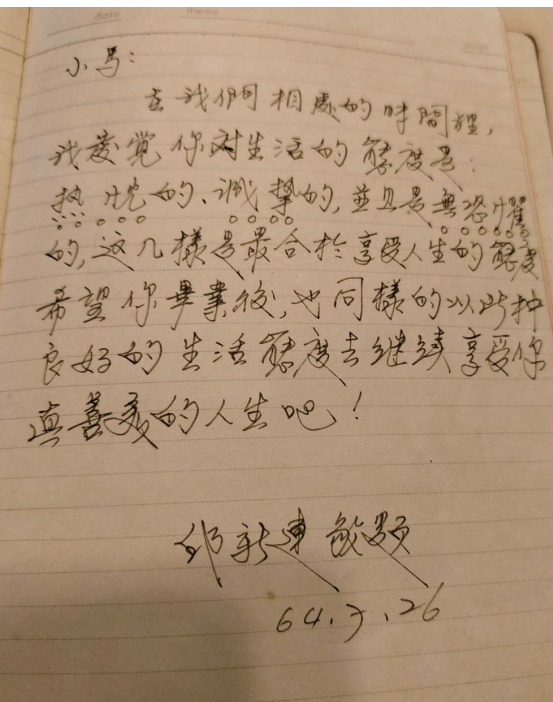 date
theme
小馬:
在我們相處的時間裡,
我發覺你对生活的態度是:
热忱的、誠摯的,並且是無恐懼
的,这几樣是最合於享受人生的態度
希望你畢業後,也同樣的以此种
良好的生活態度去继续享受你
真善美的人生吧!
新建 敬題
64.7.26